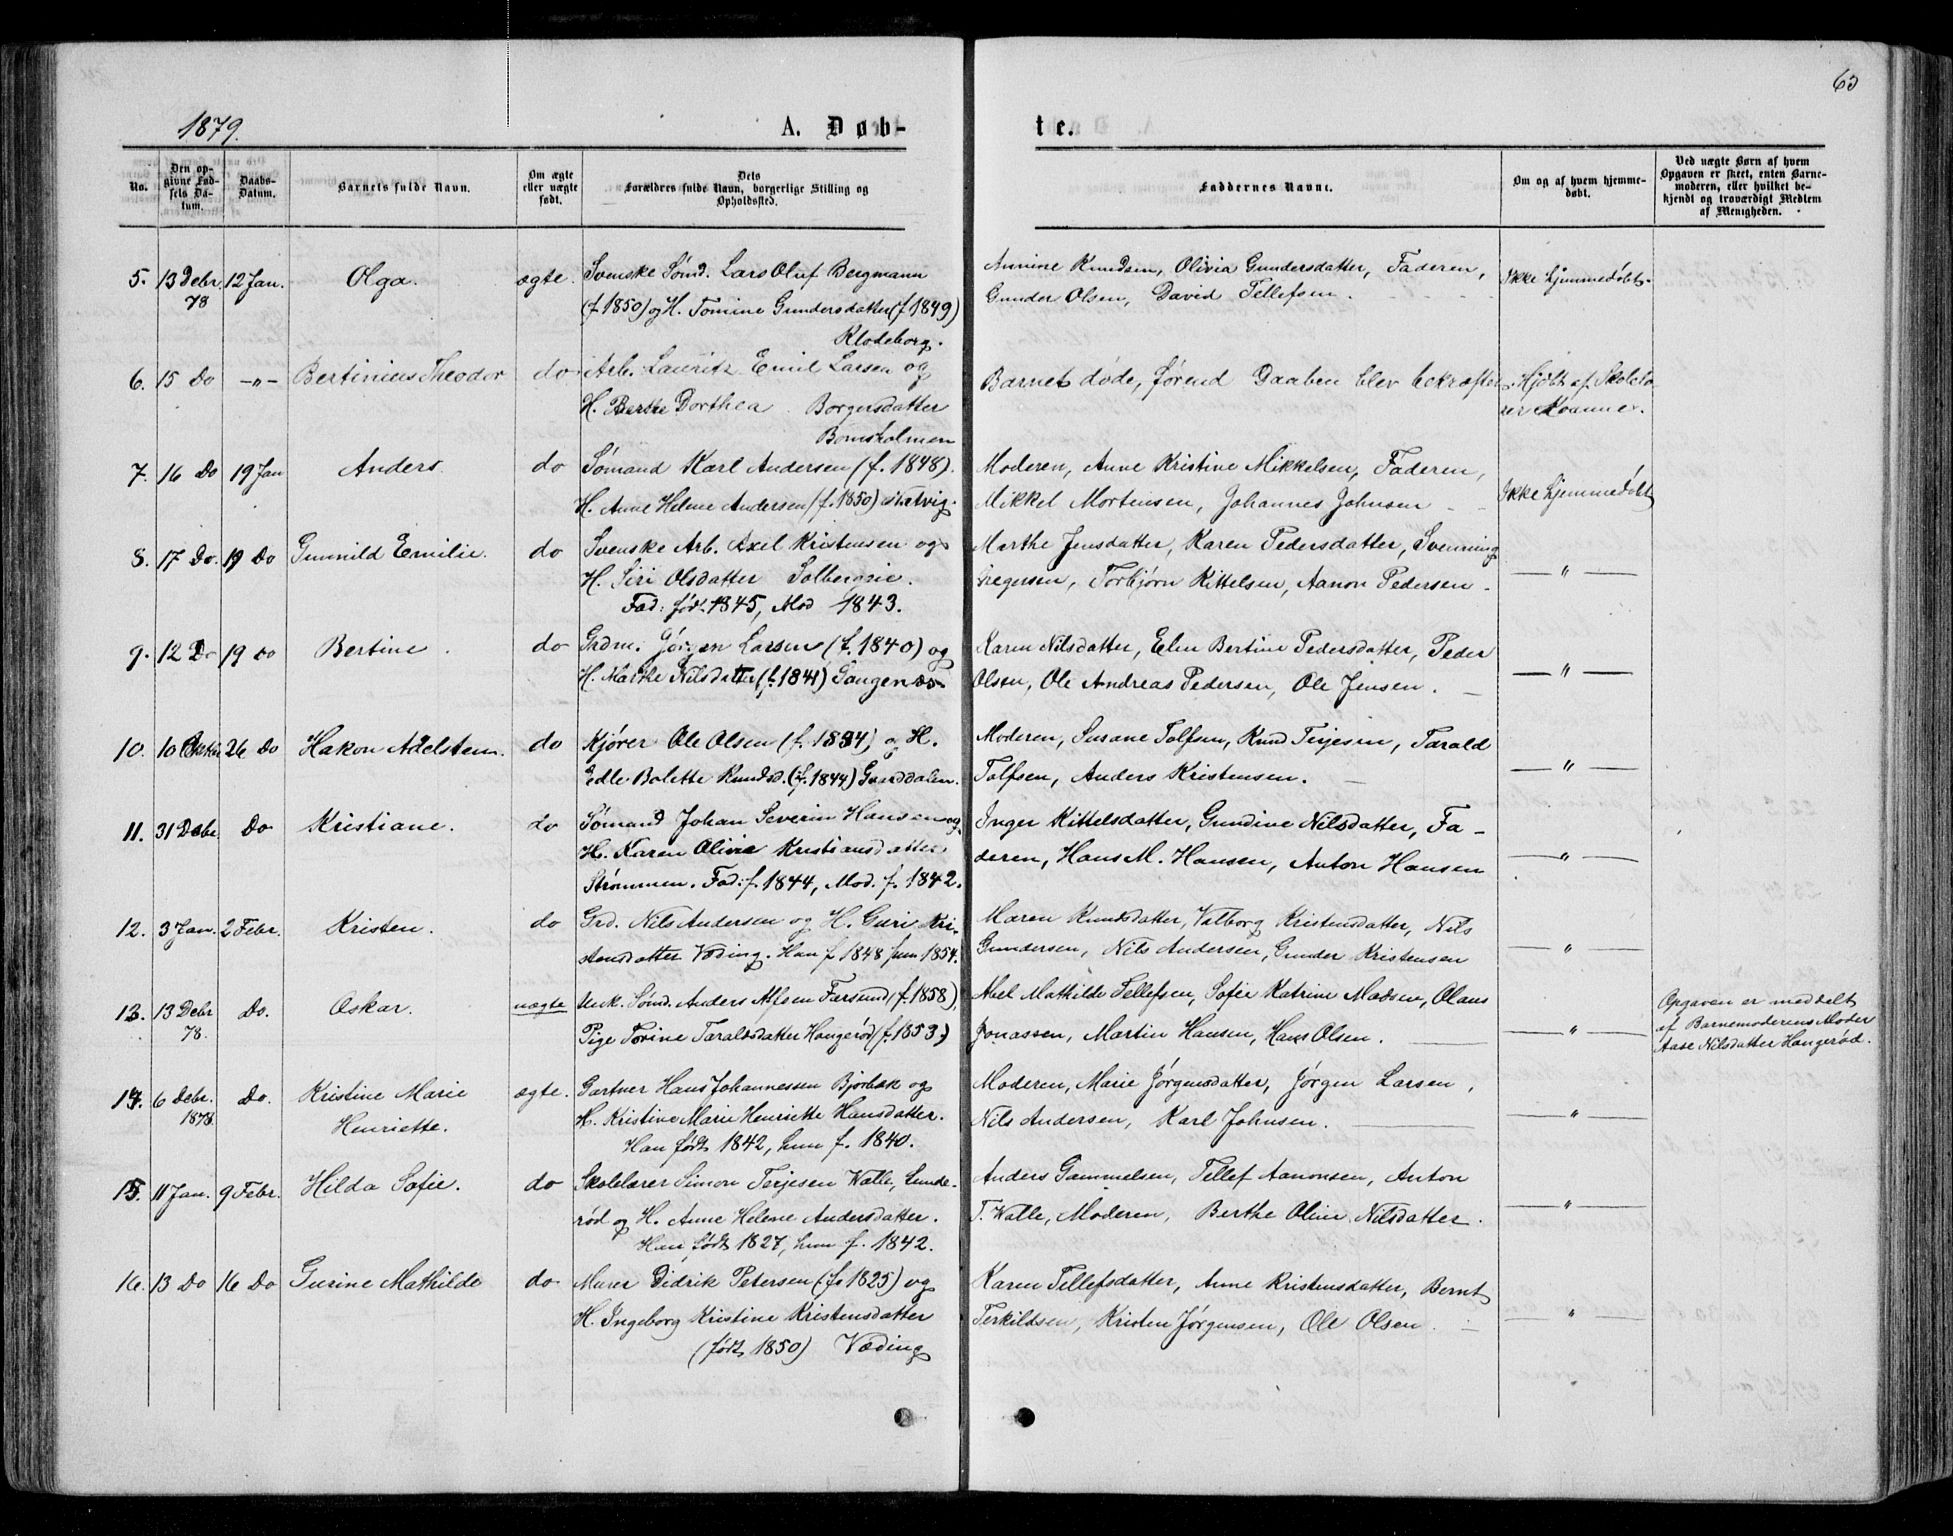 63
1879.
A. Døb-
te.
No.
Den op-
givne Fød-
sels Da-
tum.
Daabs-
Datum.
Barnets fulde Navn.
Om ægte
eller uægte
født.
Dets
Forældres fulde Navn, borgerlige Stilling og
Opholdssted.
Faddernes Navne.
Om og af hvem hjemme-
døbt.
Ved uægte Børn af hvem
Opgaven er skeet, enten Barne-
moderen, eller hvilket be-
kjendt og troværdigt Medlem
af Menigheden.
5. 13 Debr. 12 Jan. Olga. ægte. Svenske Sømd. Lars Oluf Bergmann
78 (f. 1850) og H. Tomine Gundersdatter (f. 1849)
Klodeborg.
Annine Knudsen, Olivia Gundersdatter, Faderen,
Gunder Olsen, David Tellefsen.
Ikke hjemmedøbt.
6. 15 Do -"- Bertinius Theodor do Arb. Lauritz Emil Larsen og
H. Berthe Dorthea Borgensdatter
Bomsholmen
Barnet døde, førend Daaben blev bekræftet
Hjdbt af Skolelæ
rer Kvamme.
7. 16 Do 19 Jan Anders. do Sømand Karl Andersen (f. 1848).
H. Anne Helene Andersen (f. 1850)
Moderen, Anne Kristine Mikkelsen, Faderen,
Mikkel Mortensen, Johannes Johnsen
Ikke hjemmedøbt
8. 17 Do. 19 Do Gunnild Emilie. do Svenske Arb. Axel Kristensen og
H. Siri Olsdatter Solbergsie.
Fad: født 1845, Mod 1843.
Marthe Jensdatter, Karen Pedersdatter, Svenning
Gregersen, Torbjørn Kittelsen, Aanon Pedersen.
— " —
9. 12 Do 19 do Bertine. do Grdm. Jørgen Larsen (f. 1840) og
H. Marthe Nilsdatter (f. 1841) Gangenæs
Karen Nilsdatter, Elen Bertine Pedersdatter, Peder
Olsen, Ole Andreas Pedersen, Ole Jensen.
— " —
10. 10 Oktbr 26 Do Hakon Adelsten. do Kjører Ole Olsen (f. 1834) og H.
Edle Bolette Knudsd. (f. 1844)
Moderen, Surane Tolfsen, Knud Terjesen, Tarald
Tolfsen, Anders Kristensen.
— " —
11. 31 Debr. Do Kristiane. do Sømand Johan Severin Hansen og
H. Karen Olivie Kristiansdatter,
Strømmen. Fad: f. 1844, Mod. f. 1842.
Inger Kittelsdatter, Gundine Nilsdatter, Fa-
deren, Hans M. Hansen, Anton Hansen
— " —
12. 3 Jan. 2 Febr. Kristen. do Grd. Nils Andersen og H. Guri Kri-
stensdatter Væding. Han f 1848 hun 1854.
Maren Knudsdatter, Valborg Kristensdatter, Nils
Gundersen, Nils Andersen, Gunder Kristensen
— " —
13. 13 Debr Do. Oskar. uægte Unk. Sømd. Anders Alfsen Færsund (f. 1858),
78. Pige Torine Taraldsdatter Hangerød (f. 1853)
Abel Mathilde Tellefsen, Sofie Katrine Madsen, Olaus
Jonassen, Martin Hansen, Hans Olsen.
— " —
Opgaven er meddelt
af Barnemoderens Moder
Aase Nilsdatter Hangerød.
14. 6 Debr. Do. Kristine Marie ægte. Gartner Hans Johannessen Bjorbæk og
1878. Henriette. H. Kristine Marie Henriette Hansdatter.
Han født 1842, hun f. 1840.
Moderen, Marie Jørgensdatter, Jørgen Larsen,
Nils Andersen, Karl Johnsen.
— " —
15. 11 Jan. 9 Febr. Hilda Sofie. do Skolelærer Simon Terjesen Walle, Lunde-
rød og H. Anne Helene Andersdatter.
Han født 1827, hun f. 1842.
Anders Gammelsen, Tellef Aanonsen, Anton
T. Walle, Moderen, Berthe Oline Nilsdatter.
— " —
16. 13 Do 16 Do Gurine Mathilde do Murer Didrik Petersen (f. 1825) og
H. Ingeborg Kristine Kristensdatter
(født 1850) Væding
Karen Tellefsdatter, Anne Kristensdatter, Bernt
Terkildsen, Kristen Jørgensen, Ole Olsen.
"